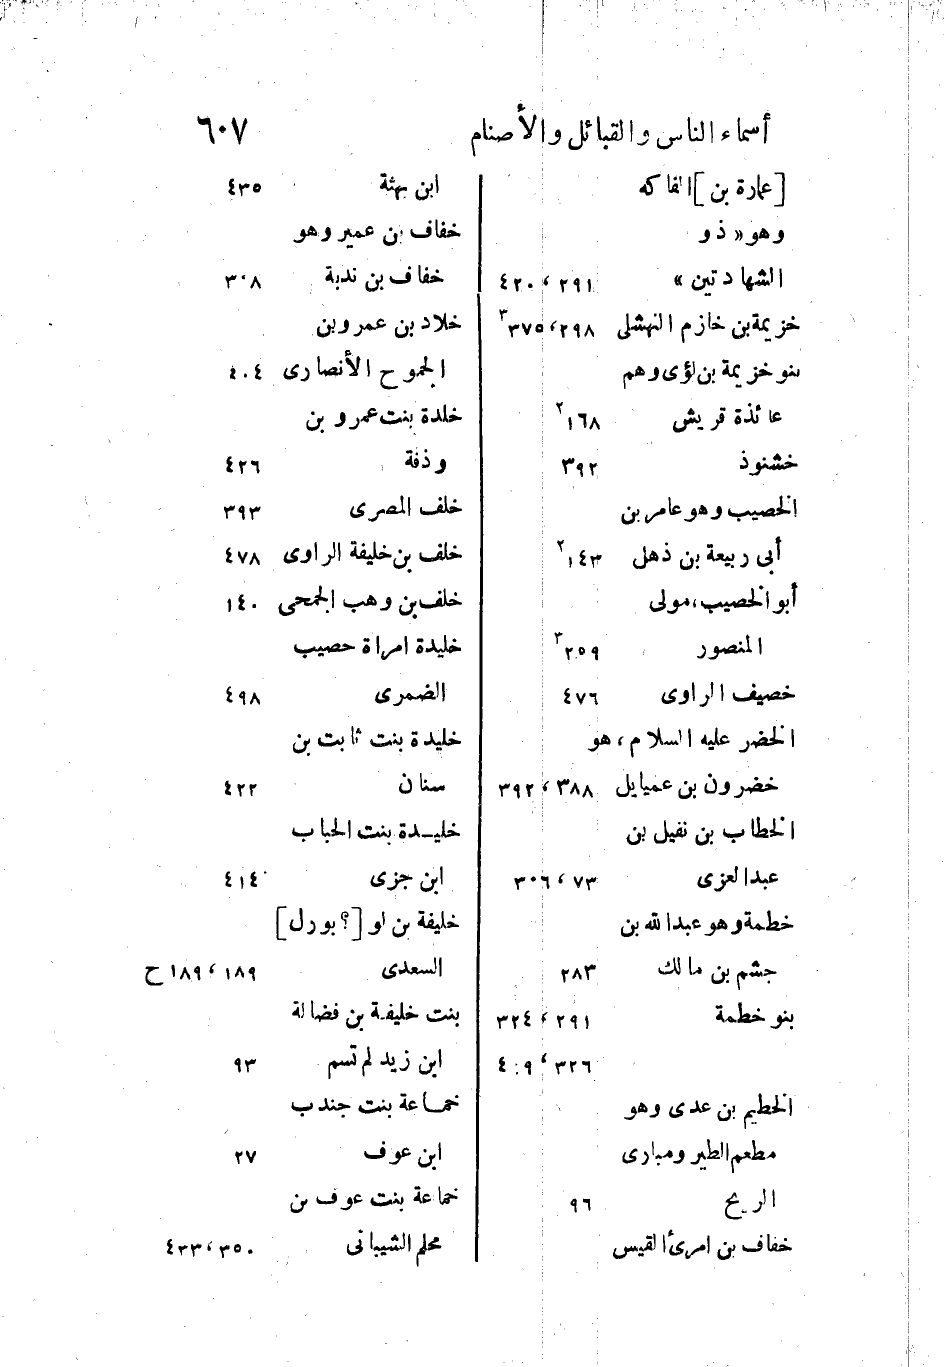 أسماء الناس والقبائل والأصنام ٦٠٧
[عمارة بن] الفاكه
وهو «ذو
الشهادتين» ٢٩١، ٤٢٠
خزيمة بن خازم النهشلى ٢٩٨، ٣٧٥٣
بنو خزيمة بن لؤى وهم
عائذة قريش ١٦٨٢
خشنوذ ٣٩٢
الخصيب وهو عامر بن
أبى ربيعة بن ذهل ١٤٣٢
أبو الخصيب، مولى
المنصور ٢٥٩٣
خصيف الراوى ٤٧٦
الخضر عليه السلام، هو
خضرون بن عميايل ٣٨٨، ٣٩٢
الخطاب بن نفيل بن
عبد العزى ٧٣، ٣٠٦
خطمة وهو عبد الله بن
جشم بن مالك ٢٨٣
بنو خطمة ٢٩١، ٣٢٤
٣٢٦، ٤٠٩
الخطيم بن عدى وهو
مطعم الطير ومبارى
الريح ٩٦
خفاف بن امرئ القيس
ابن بهثة ٤٣٥
خفاف بن عمير وهو
خفاف بن ندبة ٣٠٨
خلاد بن عمرو بن
الجموح الأنصارى ٤٠٤
خلدة بنت عمرو بن
وذفة ٤٢٦
خلف المصرى ٣٩٣
خلف بن خليفة الراوى ٤٧٨
خلف بن وهب الجمحى ١٤٠
خليدة امراة حصيب
الضمرى ٤٩٨
خليدة بنت ثابت بن
سنان ٤٢٢
خليدة بنت الحباب
ابن جزى ٤١٤
خليفة بن او [؟ بورل]
السعدى ١٨٩، ١٨٩ ح
بنت خليفة بن فضالة
ابن زيد لم تسم ٩٣
خماعة بنت جندب
ابن عوف ٢٧
خماعة بنت عوف بن
محلم الشيبانى ٣٥٠، ٤٣٣